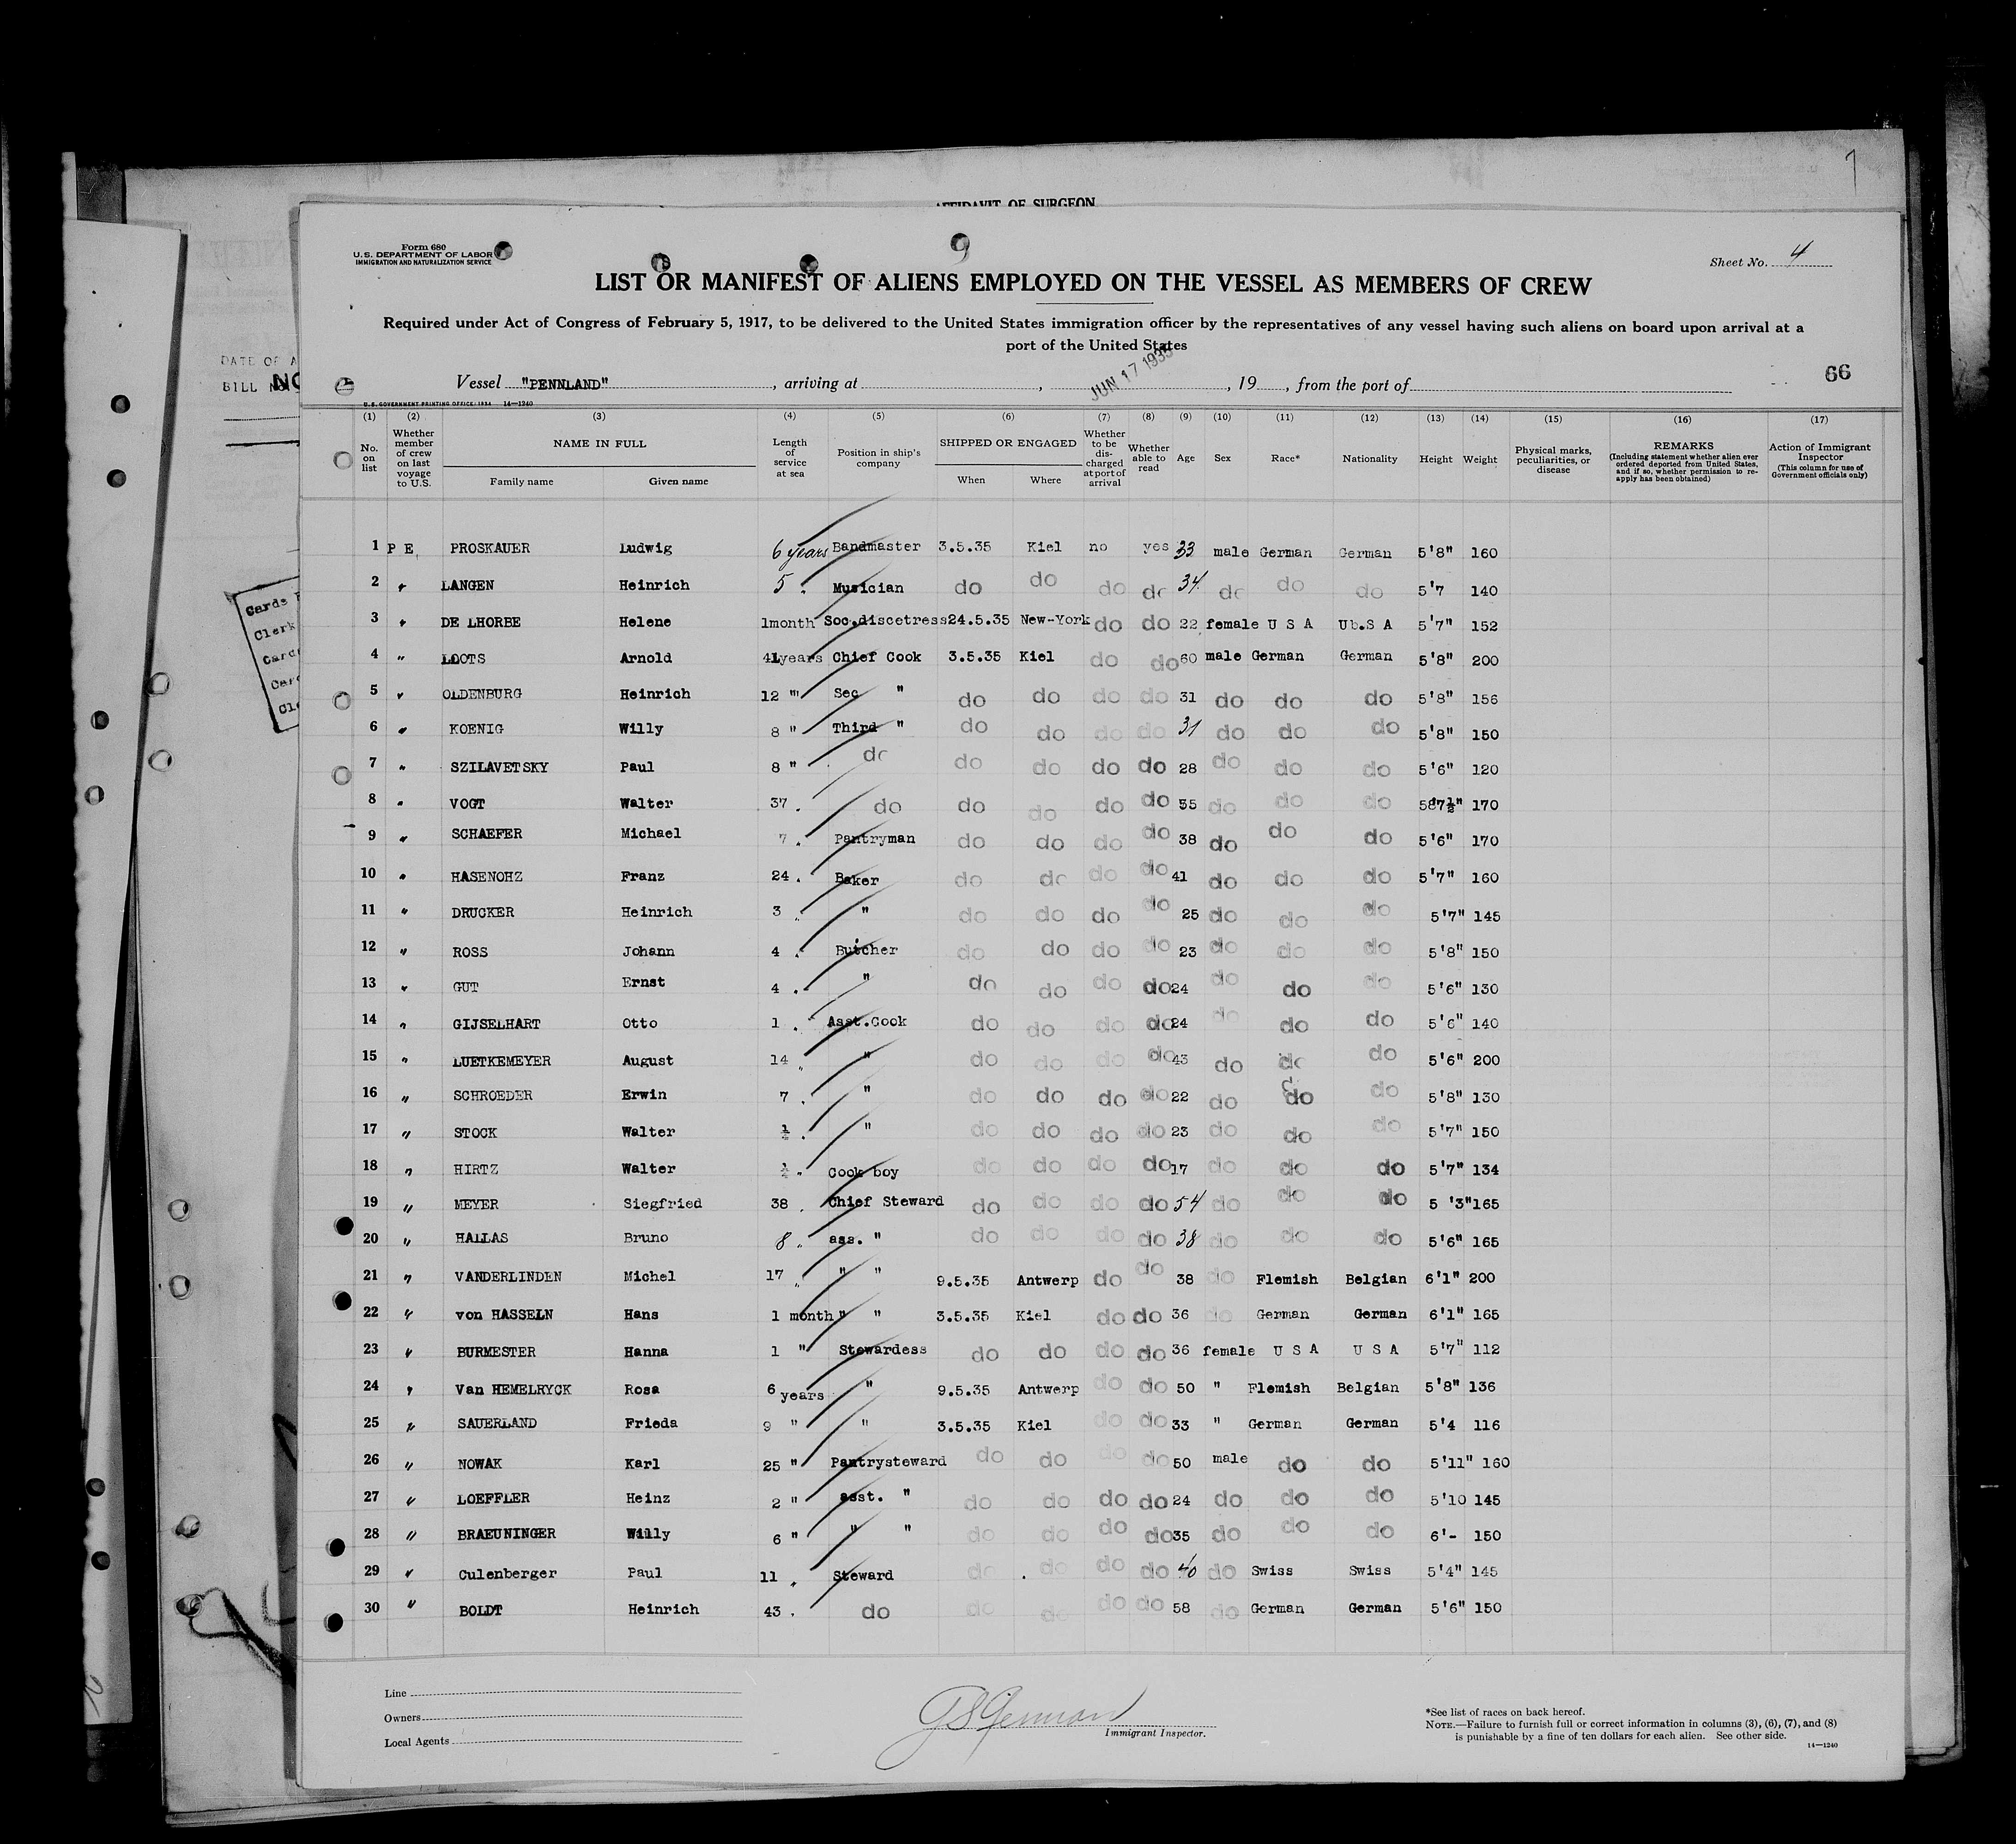 AFFIDAVIT OF SURGEON
7
DATE OF A
BILL NO.
NO
Cards
Clerk
Cards
Car
Cle
Form 680
U.S. DEPARTMENT OF LABOR
IMMIGRATION AND NATURALIZATION SERVICE
9
Sheet No. 4
LIST OR MANIFEST OF ALIENS EMPLOYED ON THE VESSEL AS MEMBERS OF CREW
Required under Act of Congress of February 5, 1917, to be delivered to the United States immigration officer by the representatives of any vessel having such aliens on board upon arrival at a
port of the United States
Vessel "PENNLAND", arriving at , JUN 17 1935, 19 , from the port of 66
U.S. GOVERNMENT PRINTING OFFICE: 1934 14—1240
(1) (2) (3) (4) (5) (6) (7) (8) (9) (10) (11) (12) (13) (14) (15) (16) (17)
No. on list Whether member of crew on last voyage to U.S. NAME IN FULL Family name Given name Length of service at sea Position in ship's company SHIPPED OR ENGAGED When Where Whether to be discharged at port of arrival Whether able to read Age Sex Race* Nationality Height Weight Physical marks, peculiarities, or disease REMARKS (Including statement whether alien ever ordered deported from United States, and if so, whether permission to re-apply has been obtained) Action of Immigrant Inspector (This column for use of Government officials only)
1 P E PROSKAUER Ludwig 6 years Bandmaster 3.5.35 Kiel no yes 33 male German German 5'8" 160
2 " LANGEN Heinrich 5 " Musician do do do do 34 do do do 5'7 140
3 " DE LHORBE Helene 1month Soc.discetress 24.5.35 New-York do do 22 female U S A Ub.S A 5'7" 152
4 " LOOTS Arnold 41years Chief Cook 3.5.35 Kiel do do 60 male German German 5'8" 200
5 " OLDENBURG Heinrich 12 " Sec " do do do do 31 do do do 5'8" 156
6 " KOENIG Willy 8 " Third " do do do do 31 do do do 5'8" 150
7 " SZILAVETSKY Paul 8 " do do do do do 28 do do do 5'6" 120
8 " VOGT Walter 37 " do do do do do 55 do do do 5'7½" 170
9 " SCHAEFER Michael 7 " Pantryman do do do do 38 do do do 5'6" 170
10 " HASENOHZ Franz 24 " Baker do do do do 41 do do do 5'7" 160
11 " DRUCKER Heinrich 3 " " do do do do 25 do do do 5'7" 145
12 " ROSS Johann 4 " Butcher do do do do 23 do do do 5'8" 150
13 " GUT Ernst 4 " " do do do do 24 do do do 5'6" 130
14 " GIJSELHART Otto 1 " Asst.Cook do do do do 24 do do do 5'6" 140
15 " LUETKEMEYER August 14 " " do do do do 43 do do do 5'6" 200
16 " SCHROEDER Erwin 7 " " do do do do 22 do do do 5'8" 130
17 " STOCK Walter ½ " " do do do do 23 do do do 5'7" 150
18 " HIRTZ Walter ½ " Cook boy do do do do 17 do do do 5'7" 134
19 " MEYER Siegfried 38 " Chief Steward do do do do 54 do do do 5 '3" 165
20 " HALLAS Bruno 8 " ass. " do do do do 38 do do do 5'6" 165
21 " VANDERLINDEN Michel 17 " " " 9.5.35 Antwerp do do 38 do Flemish Belgian 6'1" 200
22 " von HASSELN Hans 1 month " " 3.5.35 Kiel do do 36 do German German 6'1" 165
23 " BURMESTER Hanna 1 " Stewardess do do do do 36 female U S A U S A 5'7" 112
24 " Van HEMELRYCK Rosa 6 years " 9.5.35 Antwerp do do 50 " Flemish Belgian 5'8" 136
25 " SAUERLAND Frieda 9 " " 3.5.35 Kiel do do 33 " German German 5'4 116
26 " NOWAK Karl 25 " Pantrysteward do do do do 50 male do do 5'11" 160
27 " LOEFFLER Heinz 2 " asst. " do do do do 24 do do do 5'10 145
28 " BRAEUNINGER Willy 6 " " " do do do do 35 do do do 6'- 150
29 " Culenberger Paul 11 " Steward do do do do 40 do Swiss Swiss 5'4" 145
30 " BOLDT Heinrich 43 " do do do do do 58 do German German 5'6" 150
Line
Owners
Local Agents
Immigrant Inspector.
*See list of races on back hereof.
NOTE.—Failure to furnish full or correct information in columns (3), (6), (7), and (8)
is punishable by a fine of ten dollars for each alien. See other side.
14—1240